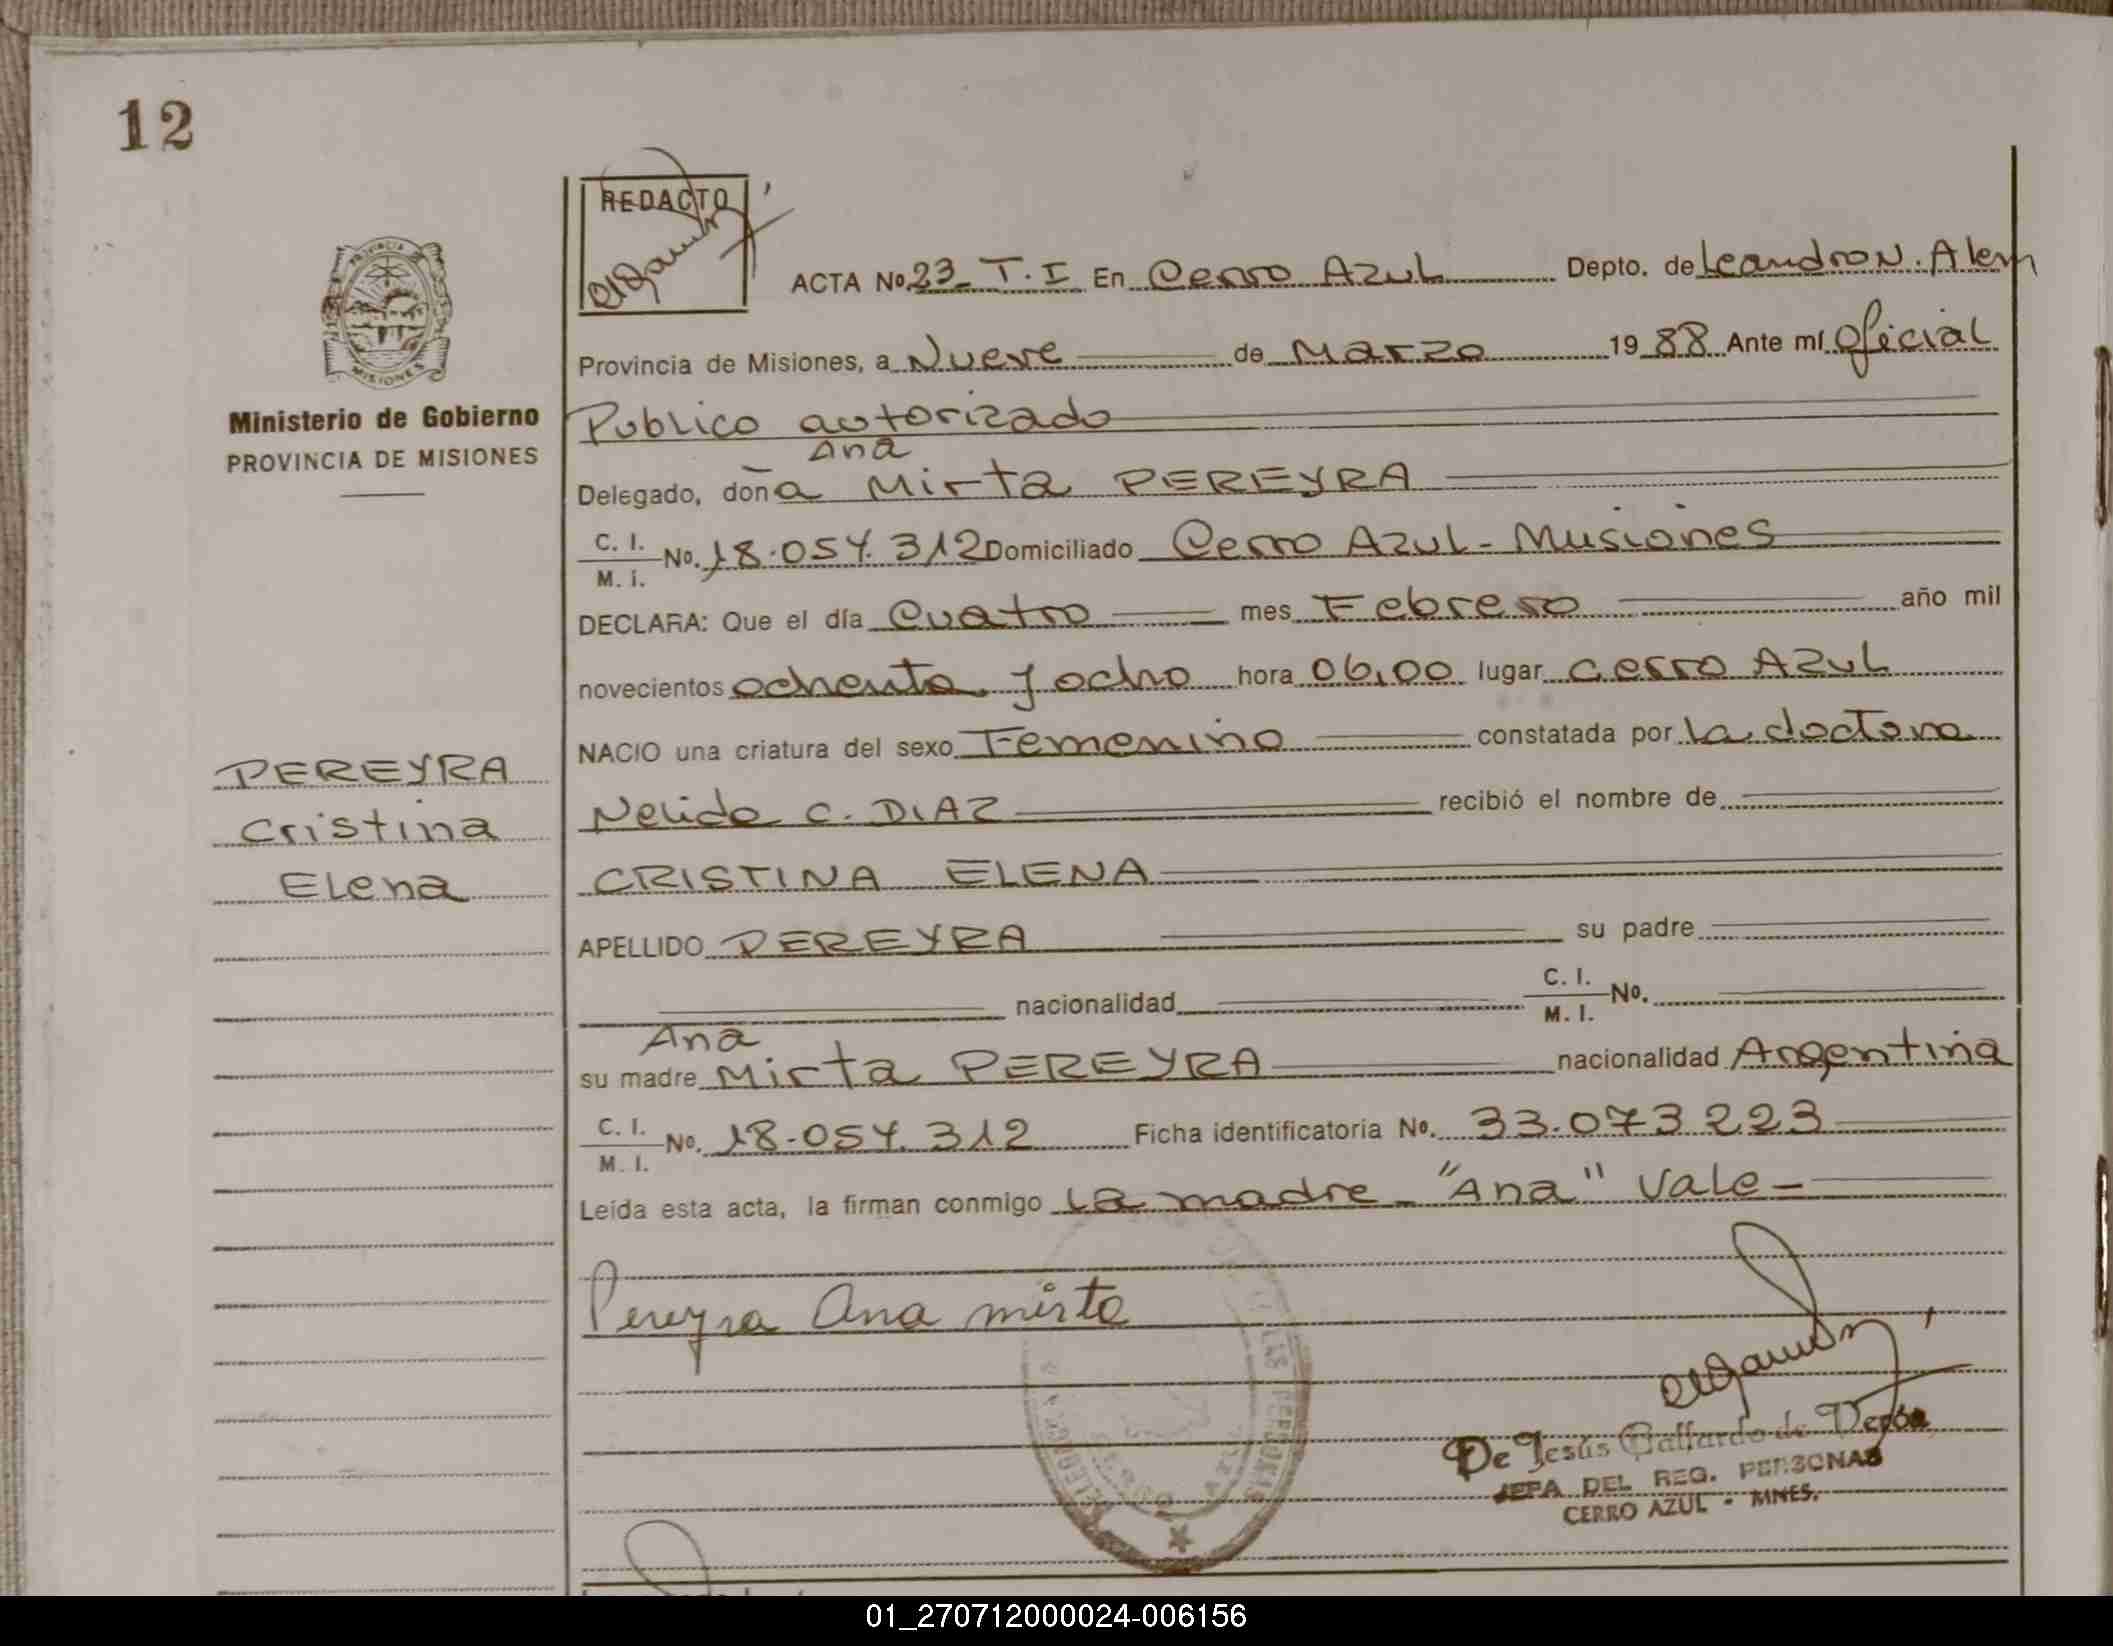 12
REDACTO
PROVINCIA DE
MISIONES
Ministerio de Gobierno
PROVINCIA DE MISIONES
ACTA No. 23_ T.I En Cerro Azul Depto. de Leandro N. Alem
Provincia de Misiones, a Nueve de Marzo 1988 Ante mí oficial
Publico autorizado
Ana
Delegado, doña Mirta PEREYRA
C. I. / M. I. No. 18.054.312 Domiciliado Cerro Azul - Misiones
DECLARA: Que el día Cuatro mes Febrero año mil
novecientos ochenta y ocho hora 06,00 lugar Cerro Azul
NACIO una criatura del sexo Femenino constatada por la doctora
Nelida C. DIAZ recibió el nombre de
CRISTINA ELENA
APELLIDO PEREYRA su padre
nacionalidad C. I. / M. I. No.
Ana
su madre Mirta PEREYRA nacionalidad Argentina
C. I. / M. I. No. 18.054.312 Ficha identificatoria No. 33.073.223
Leída esta acta, la firman conmigo la madre - "Ana" Vale -
PEREYRA
Cristina
Elena
Pereyra Ana mirta
De Jesús Gallardo de Verón
JEFA DEL REG. PERSONAS
CERRO AZUL - MNES.
01_270712000024-006156